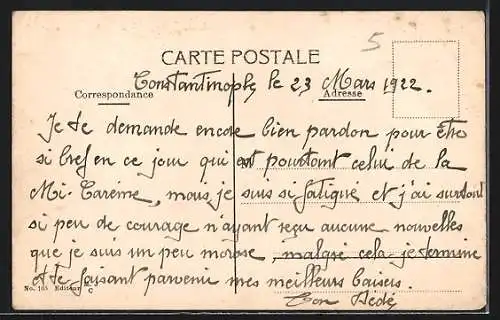 5
CARTE POSTALE
Constantinople, le 23 Mars 1922.
Correspondance
Adresse
Je te demande encore bien pardon pour être
si bref en ce jour qui est pourtant celui de la
Mi-Carême, mais je suis si fatigué et j'ai surtout
si peu de courage n'ayant reçu aucune nouvelles
que je suis un peu morose, malgré cela je termine
et te faisant parvenir mes meilleurs baisers.
Ton Dédé
No. 165 Editeur